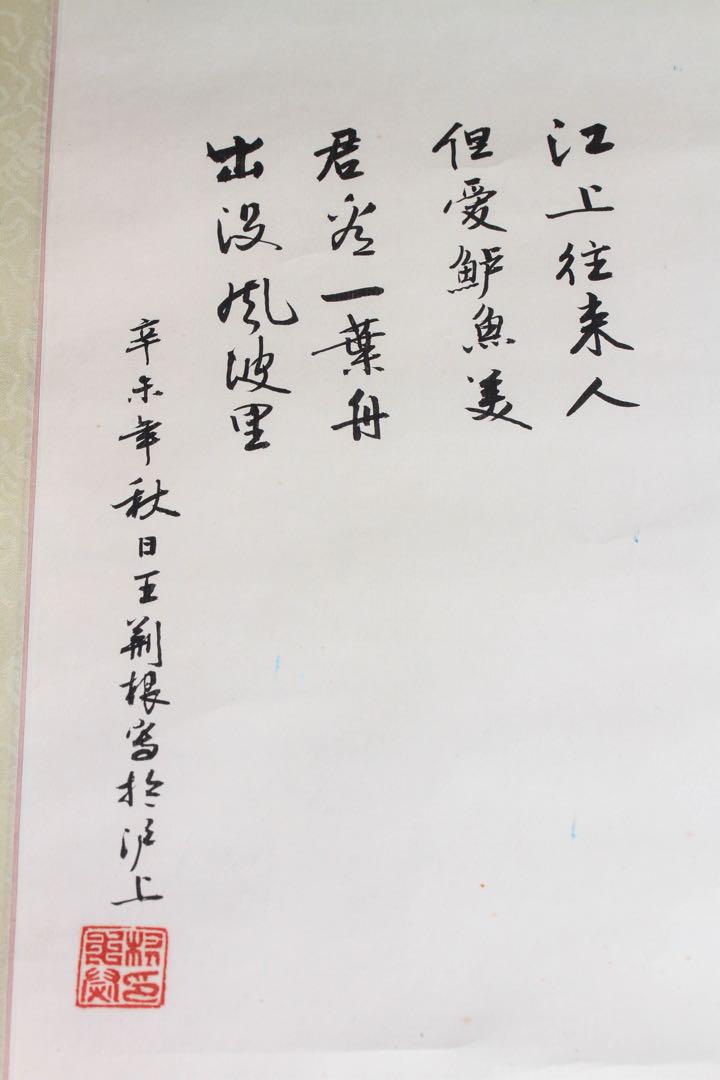 江上往来人
但爱鲈魚美
君看一葉舟
出没风波里
辛未年秋日王荆根寫於沪上